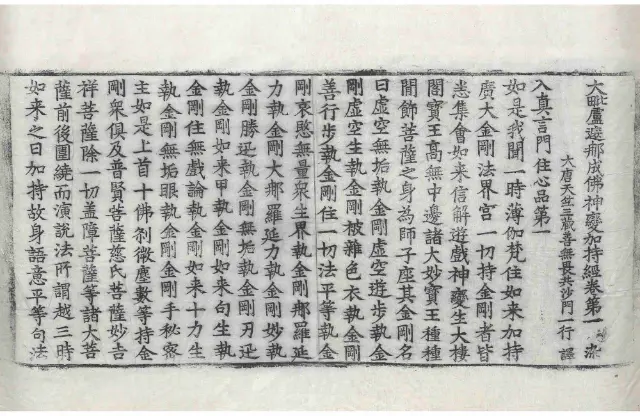 大毗盧遮那成佛神變加持經卷第一
大唐天竺三藏善無畏共沙門一行 譯
入真言門住心品第一
如是我聞一時薄伽梵住如来加持
廣大金剛法界宮一切持金剛者皆
悉集會如来信解遊戲神變生大樓
閣寶王高無中邊諸大妙寶王種種
間飾菩薩之身為師子座其金剛名
曰虛空無垢執金剛虛空遊步執金
剛虛空生執金剛被雜色衣執金剛
善行步執金剛住一切法平等執金
剛哀愍無量衆生界執金剛那羅延
力執金剛大那羅延力執金剛妙執
金剛勝迅執金剛無垢執金剛刃迅
執金剛如来甲執金剛如来句生執
金剛住無戲論執金剛如来十力生
執金剛無垢眼執金剛金剛手秘密
主如是上首十佛刹微塵數等持金
剛衆俱及普賢菩薩慈氏菩薩妙吉
祥菩薩除一切盖障菩薩等諸大菩
薩前後圍繞而演說法所謂越三時
如来之日加持故身語意平等句法